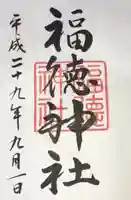 福徳神社
平成二十九年九月一日
福徳神社